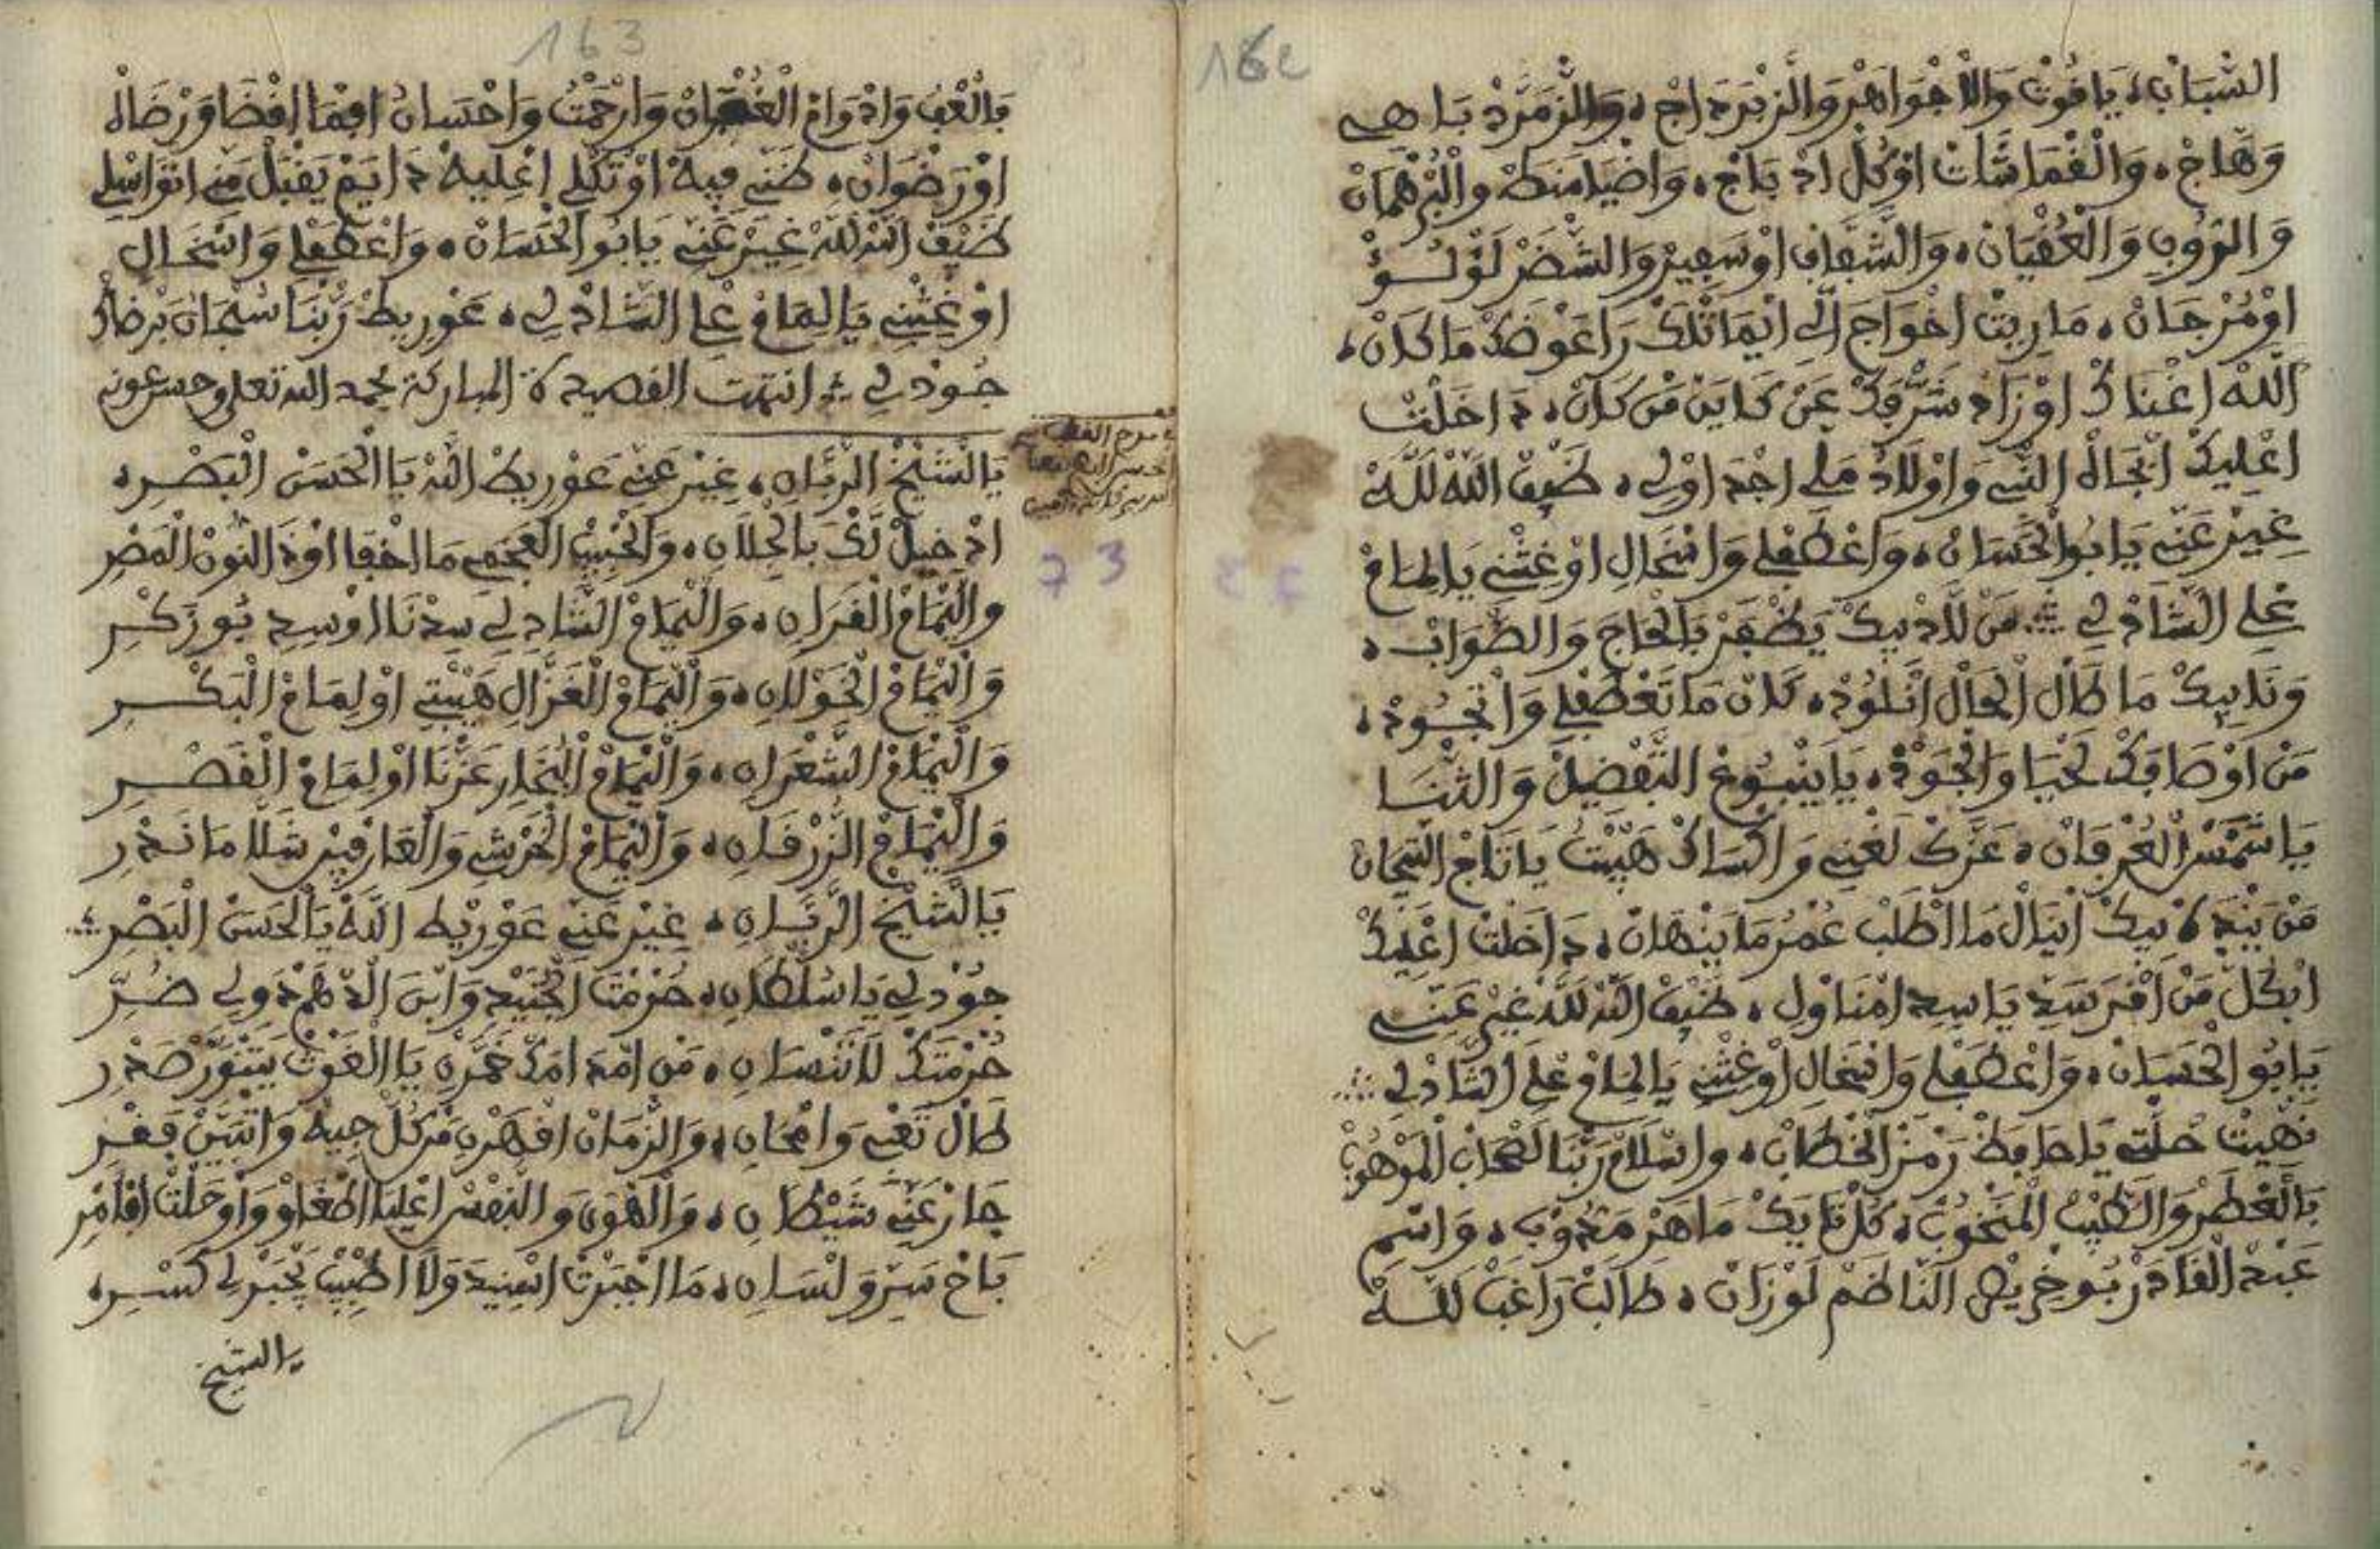 162
الشبان، ياقوت والاجواهر والزبرداج، والزمرد باهي
وهاج، والقماشات اوكل ادباج، واضيامنط والبرهمان
والروب والعقيان، والشقاف اوسفير والشضر لولو
اومرجان، ماريت اخواج الي انيماثلك راعوضك ماكان،
الله اغناك اوزاد شرفك عن كاين من كان، داخلت
اعليك ابجاه النبي واولاد علي اجداولي، ضيف الله لله
غير عني يابو الحسان، واعطفلي وانخال اوغثني يالمام
علي الشاذلي من لاذبيك يظفر بالحاج والطواب،
وناابيك ماطال الحال انلوذ، كان ماتعطفلي واتجود،
من اوصافك لحيا والجود، ياينبوع التفضيل والثنا
ياشمس العرفان، عزك لغني واكساك هيبت ياتاج التيجان
من بيده بيك انيال مااطلب عمر ماينهان، داخلت اعليك
ابكل من اقرسد ياسيد امناول، ضيف الله لله غير عني
يابو الحسان، واعطفلي وانخال اوغثني يالمام علي الشاذلي
نهيت حلتي ياحافظ رمز الخطاب، واسلام ربنا لصحاب الموهوب
بالعطر والطيب المنخوب، كل نايك ماهز مدوب، واسم
عبد القادر بوخريص الناظم لوزان، طالب راغب لله
163
بالعف وادوام الغفران وارحمت واحسان افما افضا ورضاه
اورضوان، ظني فيه اوتكلي اعليه دايم يقبل مني اتواسلي
ضيف الله لله غير عني يابو الحسان، واعطفلي وانخال
اوغثني يالمام علي الشاذلي، عوريط ربنا سبحان برضاك
جودلي انتهت القصيدة المباركة بحمد الله تعلى وحسن عونه
يالشيخ الرباني، غير عني عوريط الله ياالحسن البصري
ادخيل لك بالجلاني، والحبيب العجمي مااخفا اوذ النون المصر
واليمام الفراني، واليمام الشادلي سيدنا اوسيد بوزكر
واليمام الخولاني، واليمام الغزال هيبتي اولمام البكر
واليمام الشعراني، واليمام البخار عزنا اولمام القصر
واليمام الزرقاني، واليمام الخرشي والعارفين شلا ماندر
يالشيخ الرباني، غير عني عوريط الله يالحسن البصر
جودلي ياسلطاني، حرمت الجنيد وابن الدهم دولي ضر
حرمتك لاتنساني، من امد امدك خمرن ياالغوث يتنور صدر
طال تعبي وامحاني، والزمان اقهرن من كل جيه واتبين فقر
جار عني شيطاني، والهوى والنفس اعليا اطغاو واوحلت افامر
باح سر ولساني، مااجبرت اسيد ولا اطبيب يجبرلي كسر
يالشيخ
73